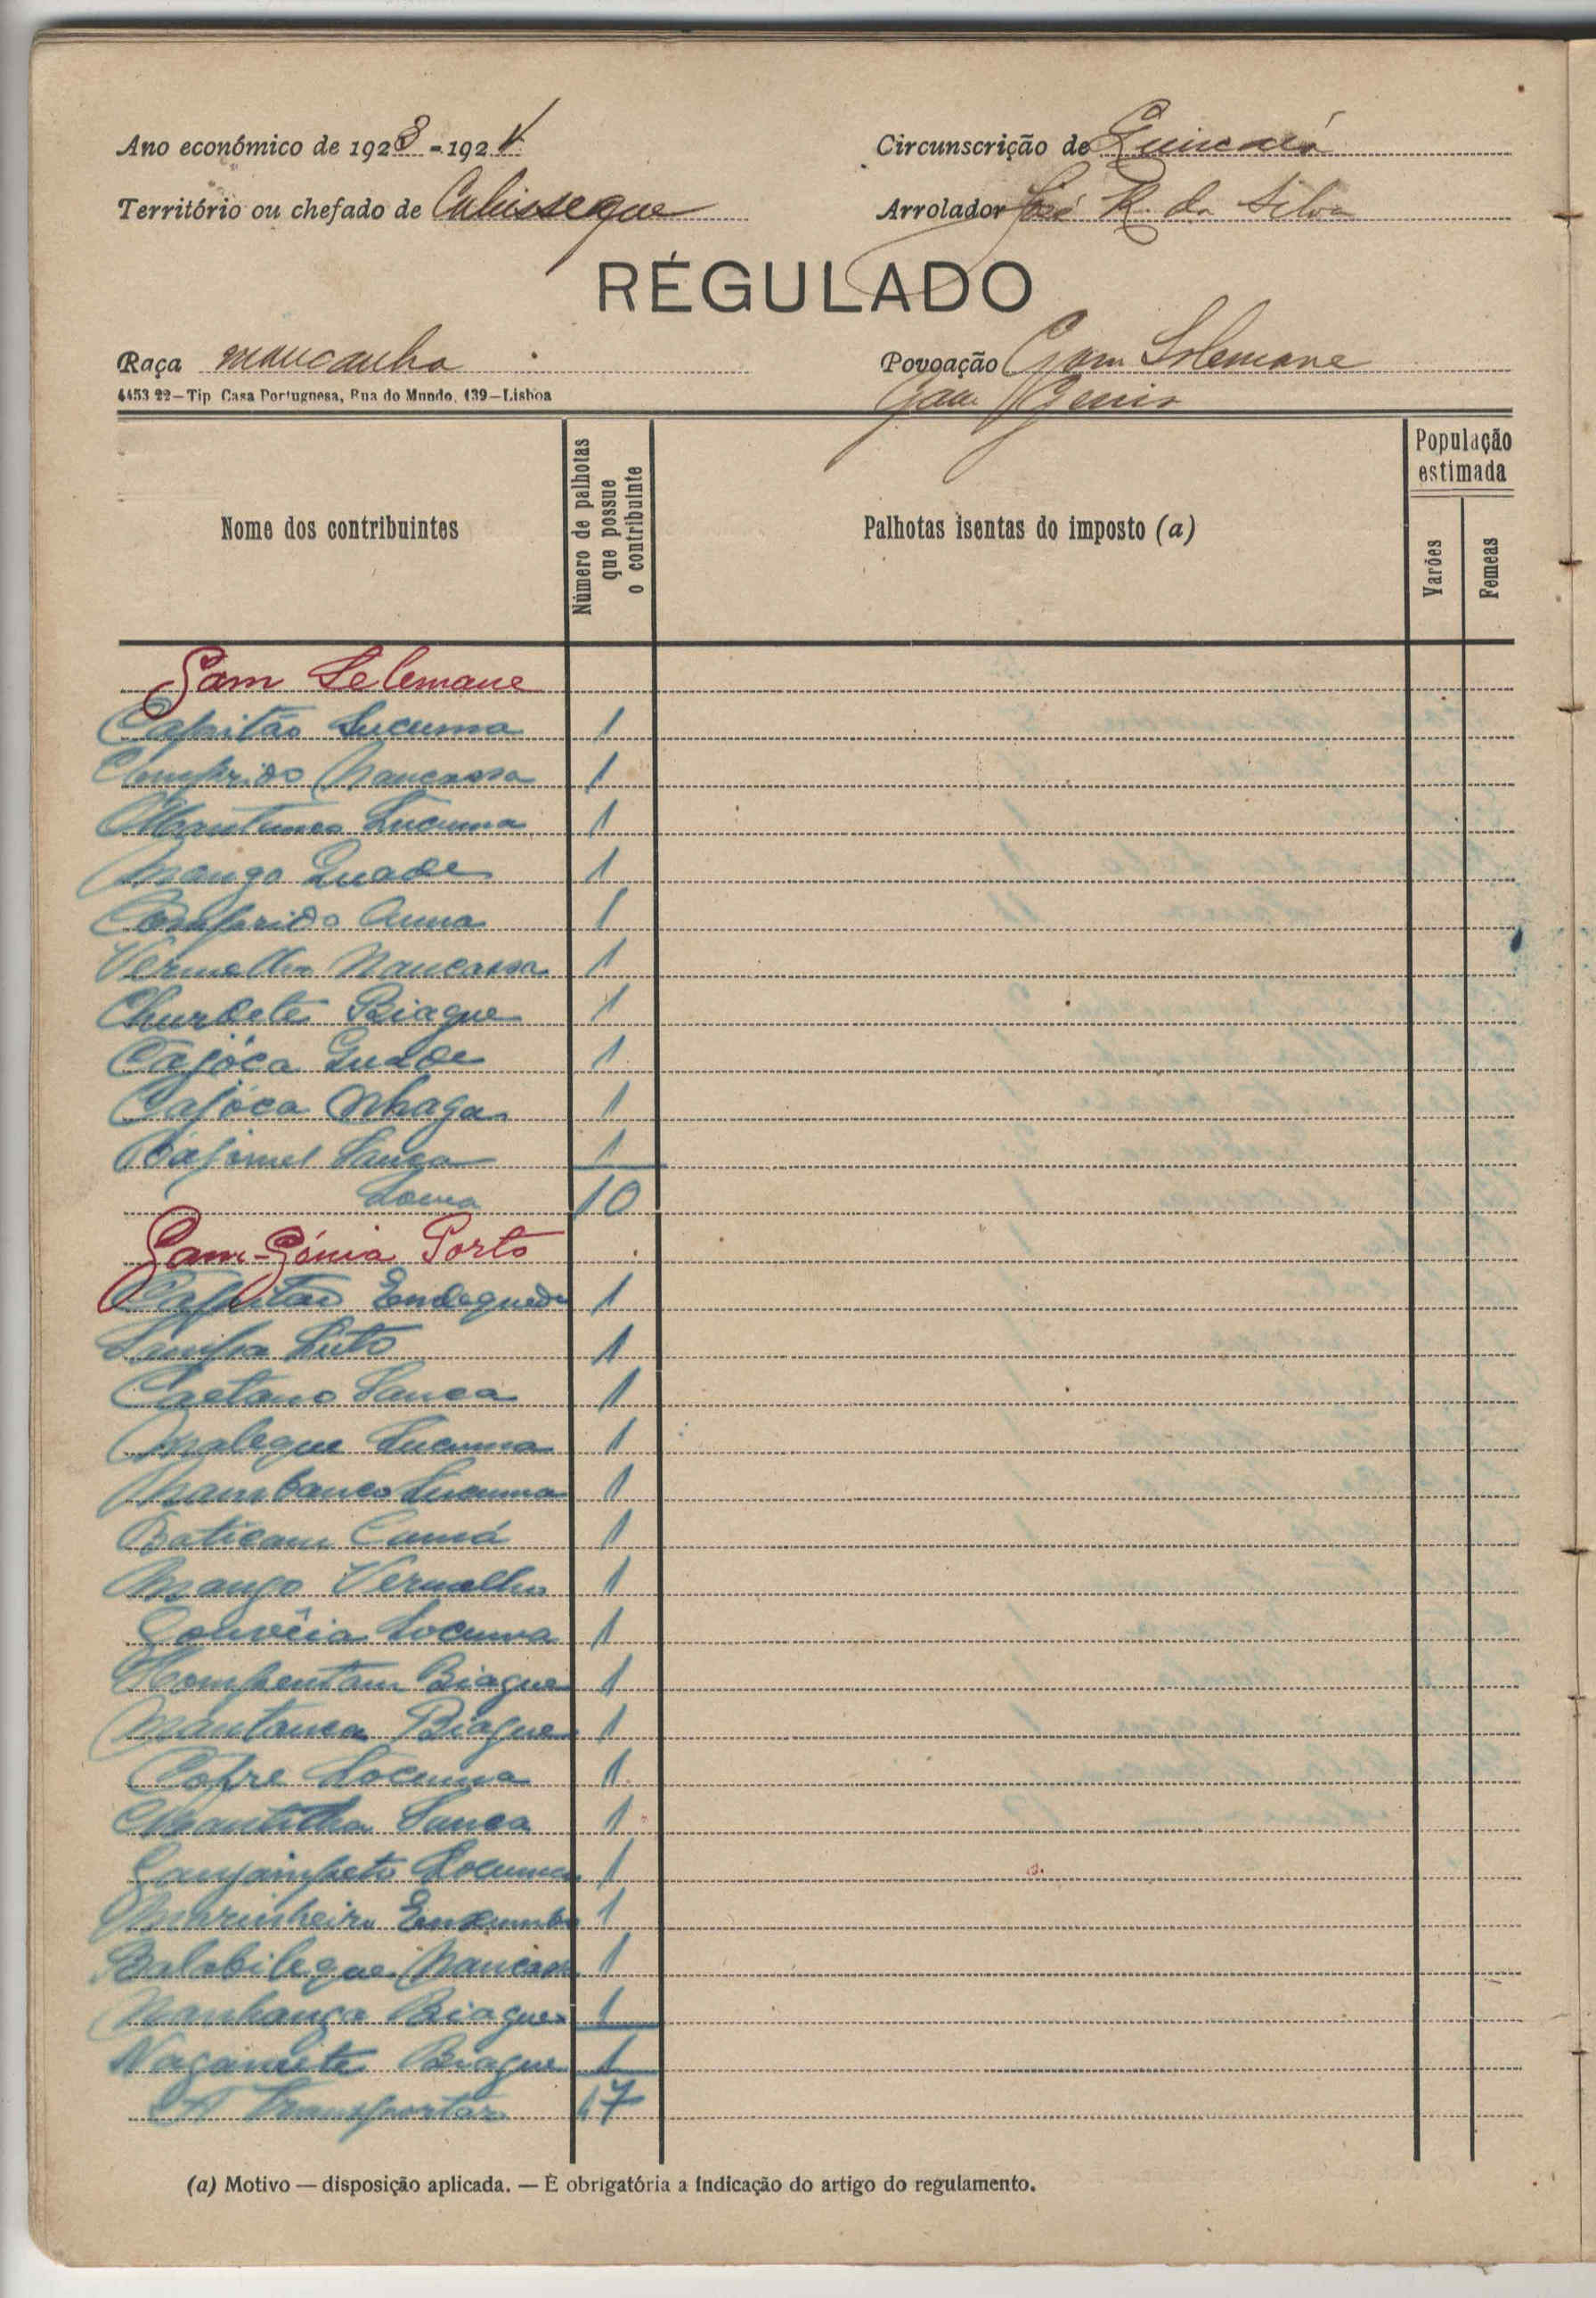 Ano económico de 1923 - 1924
Circunscrição de
Território ou chefado de Cubisseque
Arrolador José R. da Silva
RÉGULADO
Raça mancanha
Povoação Gam Solemane
Gam Genis
4453 22—Tip. Casa Portuguesa, Rua do Mundo, 139—Lisboa
Nome dos contribuintes
Número de palhotas que possue o contribuinte
Palhotas isentas do imposto (a)
População estimada
Varões
Femeas
Gam Selemane
Capitão Lucuma 1
Comprido Nancassa 1
Mantunes Lucuma 1
Mango Quade 1
Comprido Anna 1
Vermelho Nancassa 1
Churdete Biague 1
Cajóca Quade 1
Cajóca Nhaga 1
Bajimel Sanca 1
Soma 10
Gam-Génia Porto
Capitão 1
Luto 1
Caetano Sanca 1
Maleque Lucuma 1
Nambanco Lucuma 1
Baticam Camá 1
Mango Vermelho 1
Gouvêia Locuma 1
Compentam Biague 1
Mantanca Biague 1
Cofre Locuma 1
Mantitha Sanca 1
Locuma 1
Marinheiro 1
Balabilegue Nancassa 1
Manhanga Biague 1
Naganiete Biague 1
A Transportar 17
(a) Motivo — disposição aplicada. — É obrigatória a indicação do artigo do regulamento.